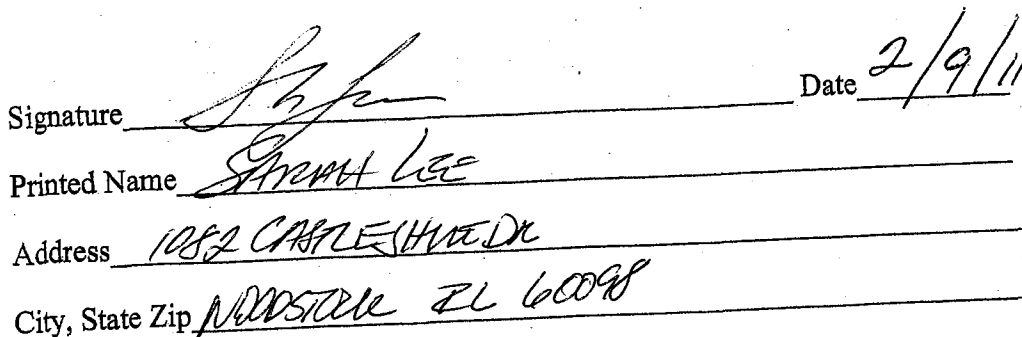 Signature Date 2/9/11
Printed Name SARAH LEE
Address 1082 CASTLESHIRE DR
City, State Zip WOODSTOCK IL 60098